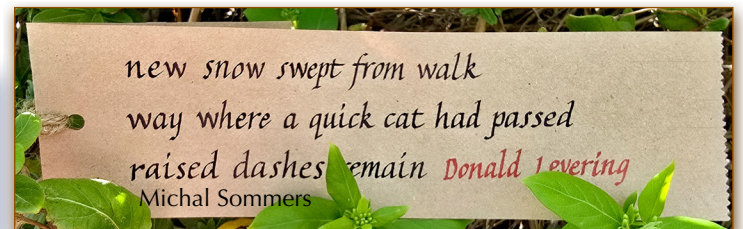 new snow swept from walk
way where a quick cat had passed
raised dashes remain Donald Levering
Michal Sommers